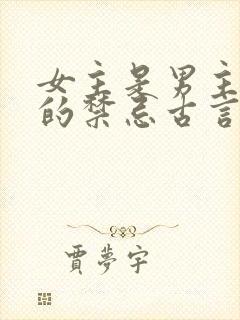 女主是男主
的禁忌古言
賈夢宇